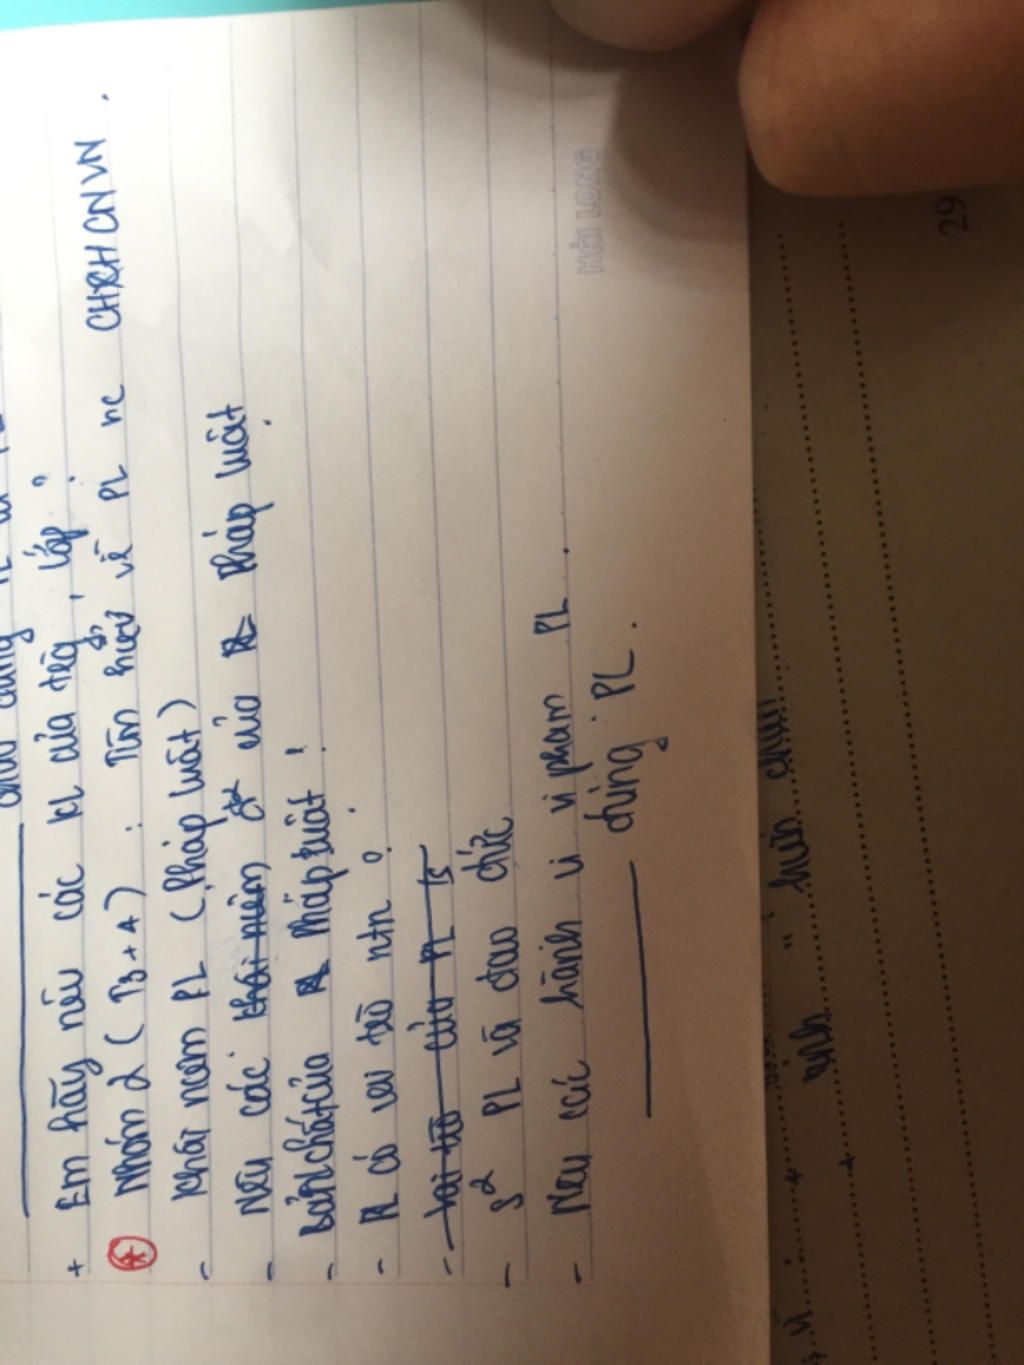 + Em hãy nêu các KL của trg, lớp ?
* Nhóm 2 (T3+4) : Tìm hiểu về PL nc CHXHCNVN.
- Khái niệm PL (Pháp luật)
- Nêu các khái niệm đ² của PL Pháp luật.
- Bản chất của PL Pháp luật !
- PL có vai trò ntn ?
- Vai trò của PL
- s² PL và đạo đức
- Nêu các hành vi vi phạm PL.
đúng PL.
HẢI LONG
29